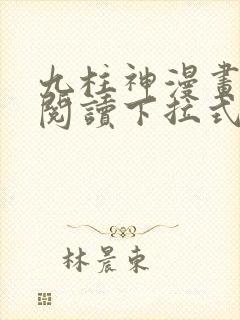 九柱神漫畫
閱讀下拉式
林晨東